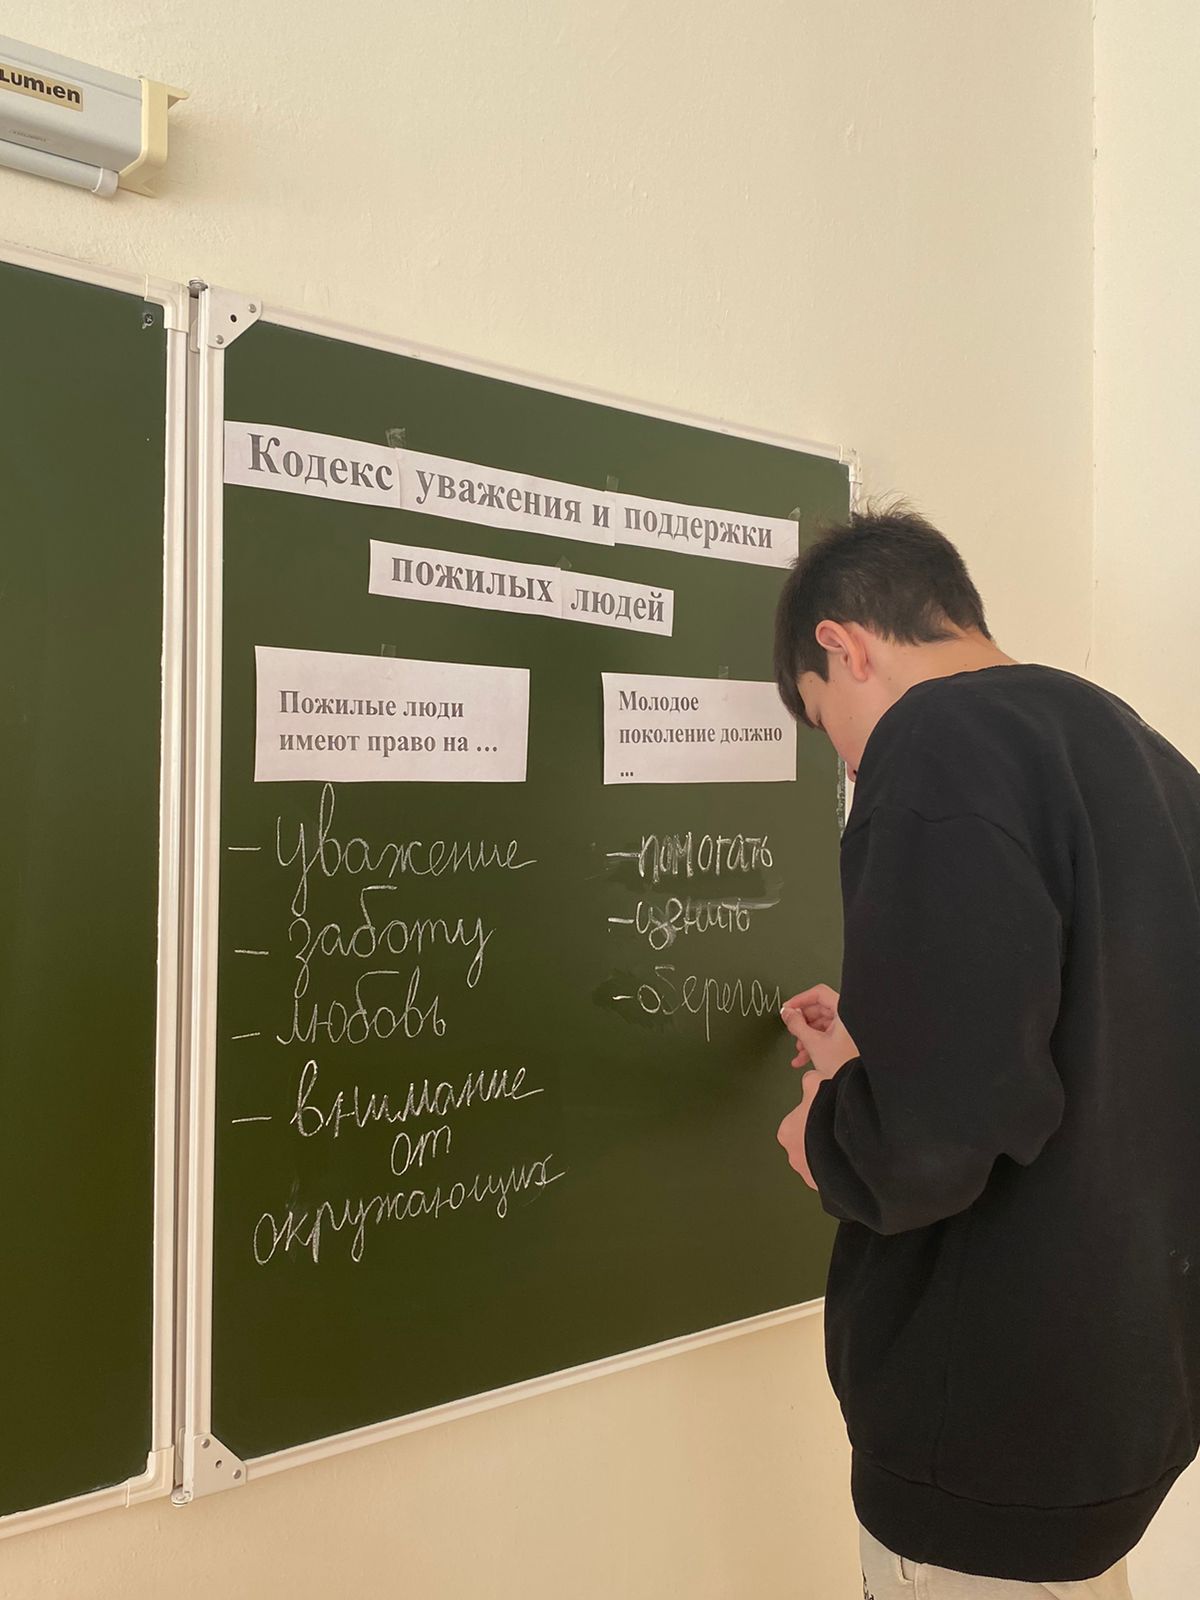 Lumien
Кодекс уважения и поддержки
пожилых людей
Пожилые люди
имеют право на ...
- уважение
- заботу
- любовь
- внимание
от
окружающих
Молодое
поколение должно
...
- помогать
- ценить
- оберегат